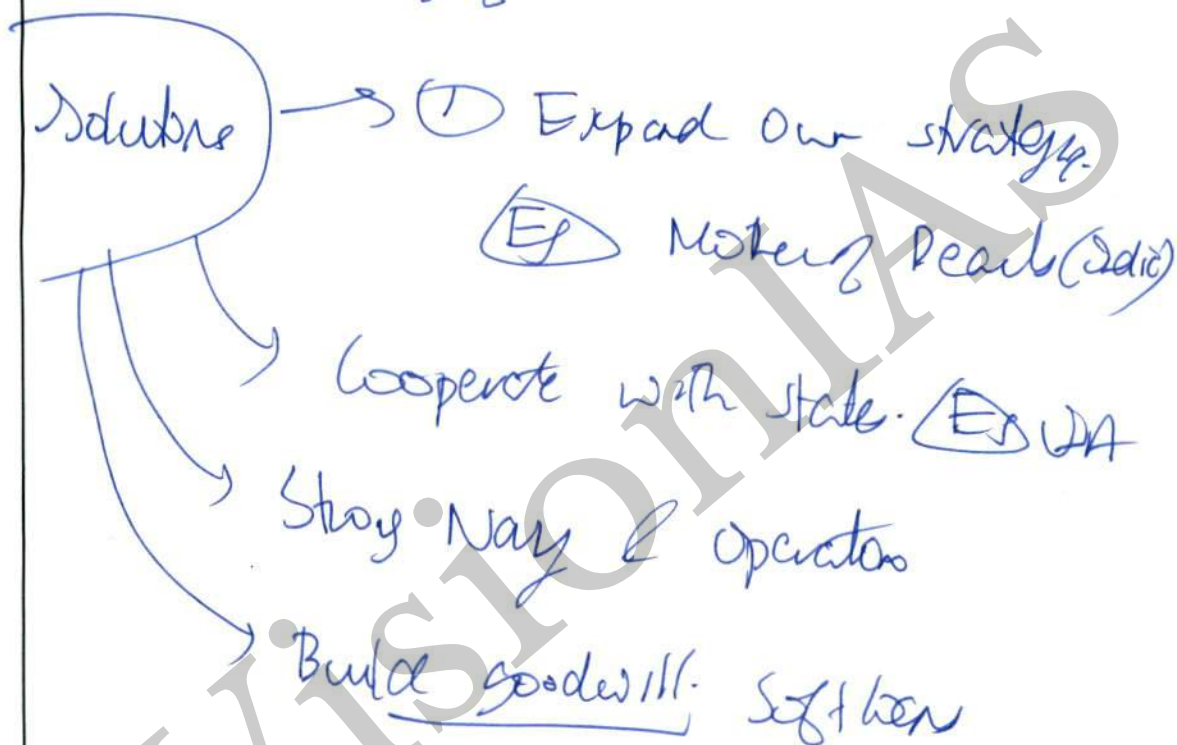 Solutions → ① Expand Own strategy.
Eg Mother of Pearls (India)
Cooperate with state. Eg USA
Strong Navy & Operations
Build goodwill. Soft loan
VisionIAS